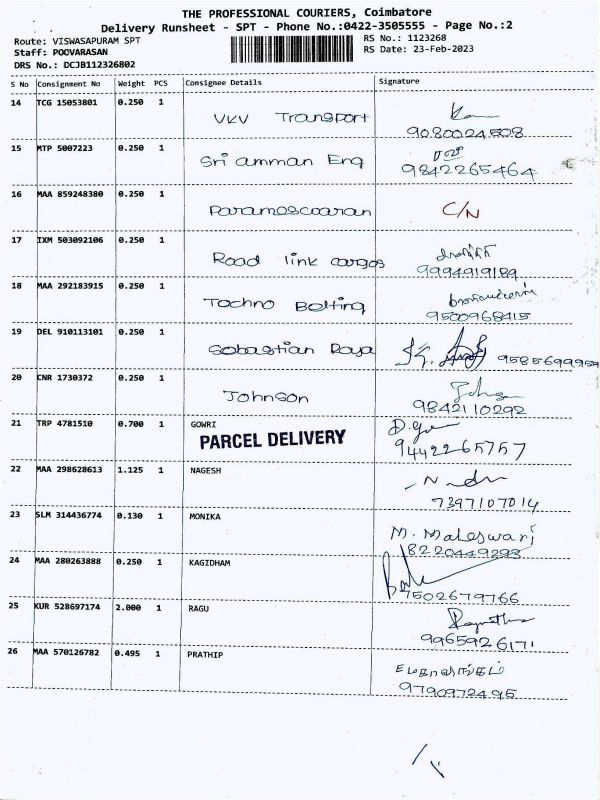 THE PROFESSIONAL COURIERS, Coimbatore
Delivery Runsheet - SPT - Phone No.:0422-3505555 - Page No.:2
Route: VISWASAPURAM SPT RS No.: 1123268
Staff: POOVARASAN RS Date: 23-Feb-2023
DRS No.: DCJB112326802
S No Consignment No Weight PCS Consignee Details Signature
14 TCG 15053801 0.250 1
VKV Transport 9080024508
15 MTP 5007223 0.250 1
Sri amman Eng 9842265464
16 MAA 859248380 0.250 1
Parameswaran C/N
17 IXM 503092106 0.250 1
Road link cargos 9994919189
18 MAA 292183915 0.250 1
Techno Belting 9500968415
19 DEL 910113101 0.250 1
Sebastian Raja 9585699959
20 CNR 1730372 0.250 1
Johnson 9842110292
21 TRP 4781510 0.700 1 GOWRI
PARCEL DELIVERY 9442265757
22 MAA 298628613 1.125 1 NAGESH
7397107014
23 SLM 314436774 0.130 1 MONIKA
M. Maheswari
8220449293
24 MAA 280263888 0.250 1 KAGIDHAM
7502679766
25 KUR 528697174 2.000 1 RAGU
9965926171
26 MAA 570126782 0.495 1 PRATHIP
9790972495